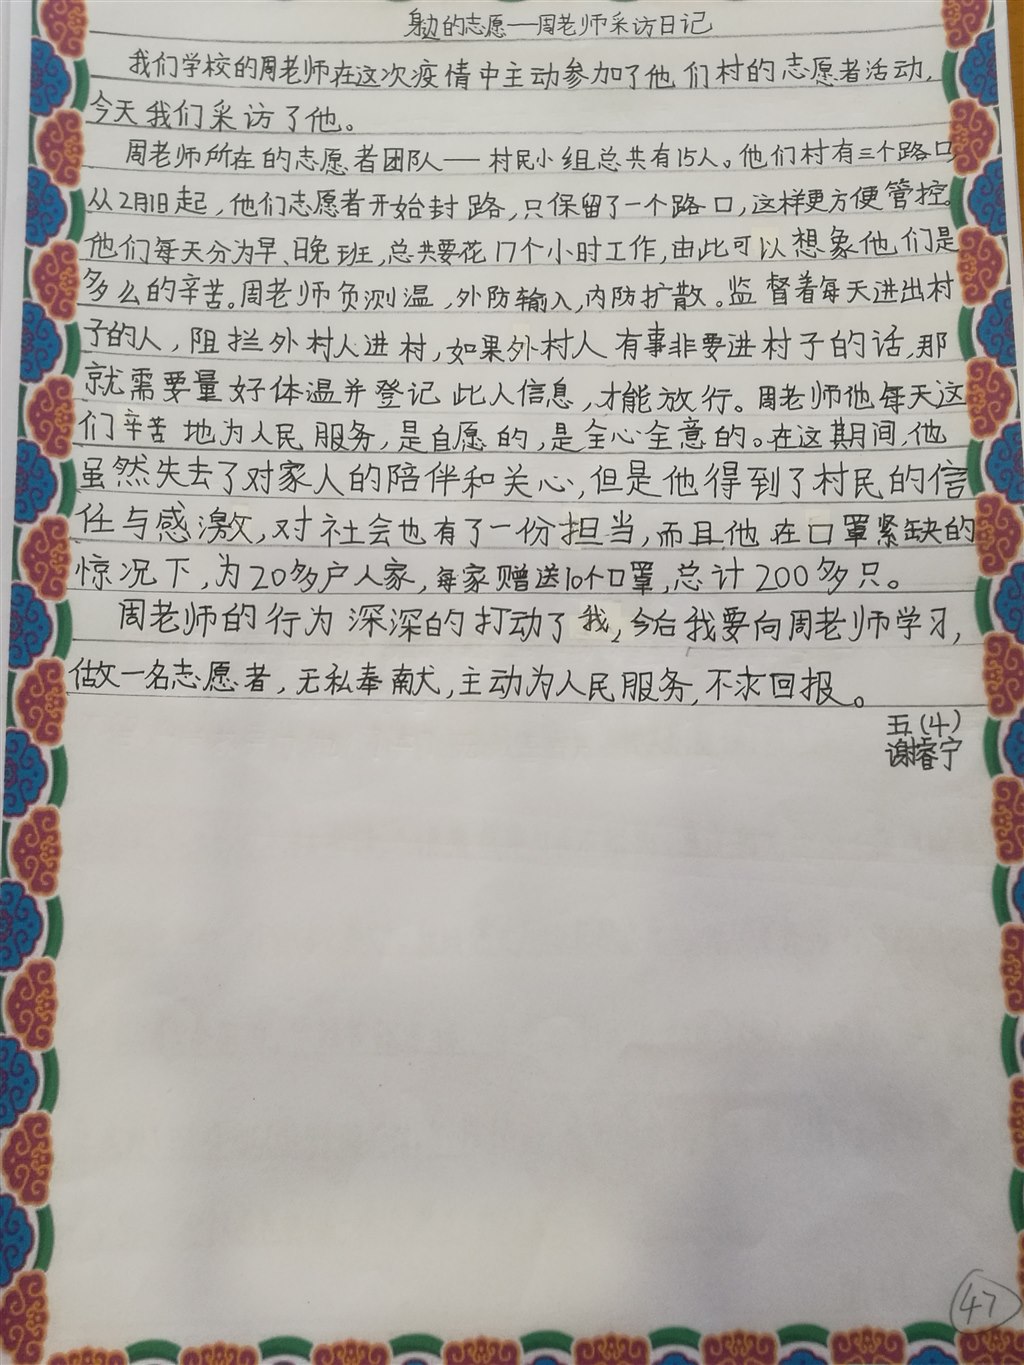 身边的志愿——周老师采访日记
我们学校的周老师在这次疫情中主动参加了他们村的志愿者活动,
今天我们采访了他。
周老师所在的志愿者团队——村民小组总共有15人。他们村有三个路口
从2月1日起,他们志愿者开始封路,只保留了一个路口,这样更方便管控。
他们每天分为早、晚班,总共要花17个小时工作,由此可以想象他们是
多么的辛苦。周老师负测温,外防输入,内防扩散。监督着每天进出村
子的人,阻拦外村人进村,如果外村人有事非要进村子的话,那
就需要量好体温并登记此人信息,才能放行。周老师他每天这
们辛苦地为人民服务,是自愿的,是全心全意的。在这期间,他
虽然失去了对家人的陪伴和关心,但是他得到了村民的信
任与感激,对社会也有了一份担当,而且他在口罩紧缺的
惊况下,为20多户人家,每家赠送10个口罩,总计200多只。
周老师的行为深深的打动了我,今后我要向周老师学习,
做一名志愿者,无私奉献,主动为人民服务,不求回报。
五(4)
谢睿宁
47